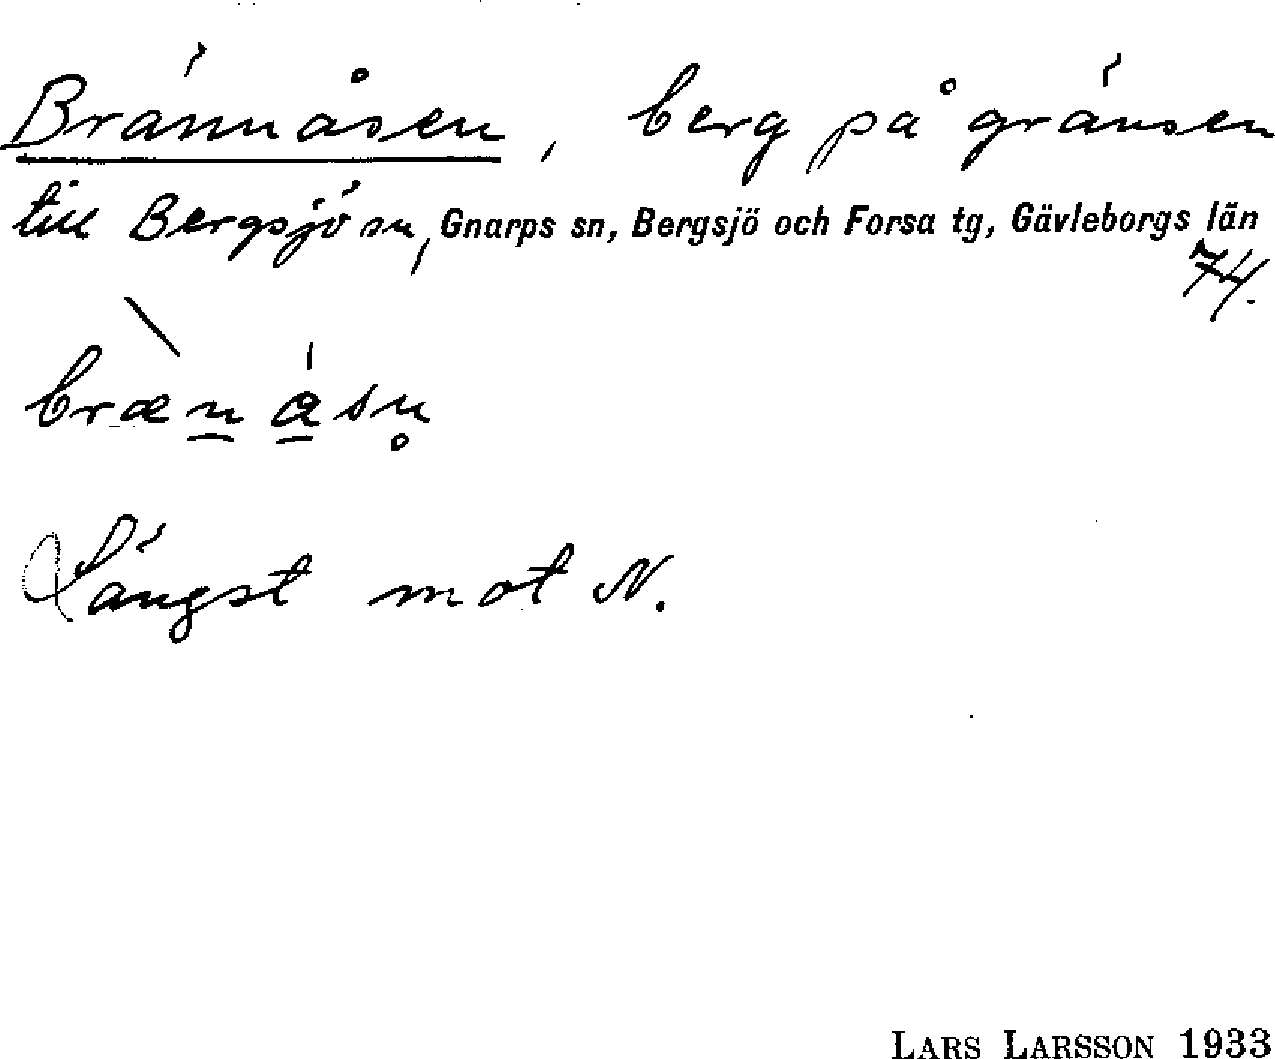 Brännåsen, berg på gränsen
till Bergsjö sn, Gnarps sn, Bergsjö och Forsa tg, Gävleborgs län
74.
bræ̀n̲á̲sn̥
Längst mot N.
LARS LARSSON 1933